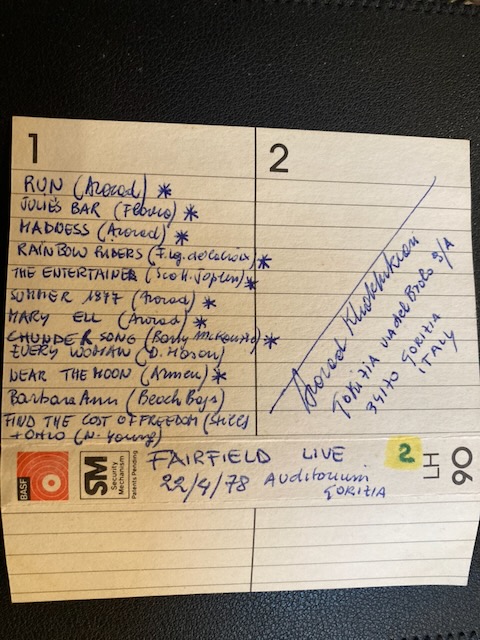 1
RUN (Ararad) *
JULIE'S BAR (Flavio) *
MADNESS (Ararad) *
RAINBOW RIDERS *
THE ENTERTAINER (Scott Joplin) *
SUMMER 1977 (Ararad) *
MARY ELL (Ararad) *
CHUNDER SONG (Barry McKenzie) *
EVERY WOMAN (D. Mason)
NEAR THE MOON (Armen) *
Barbara Ann (Beach Boys)
FIND THE COST OF FREEDOM (Stills)
+ OHIO (N. Young)
2
Ararad Khatchikian
GORIZIA via del Brolo 3/A
34170 GORIZIA
ITALY
BASF
SM
Security
Mechanism
Patents Pending
FAIRFIELD LIVE 2
22/4/78 Auditorium
GORIZIA
LH
90